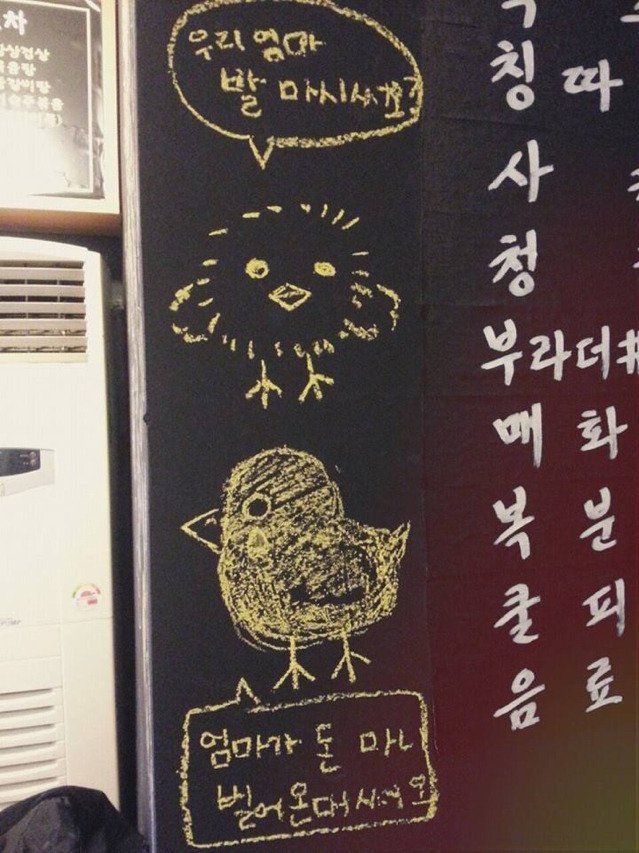 차
우리 엄마
발 마시써요?
엄마가 돈 마니
벌어온대써요
칭 따
사
청
부라더#
매 화
복 분
쿨 피
음 료